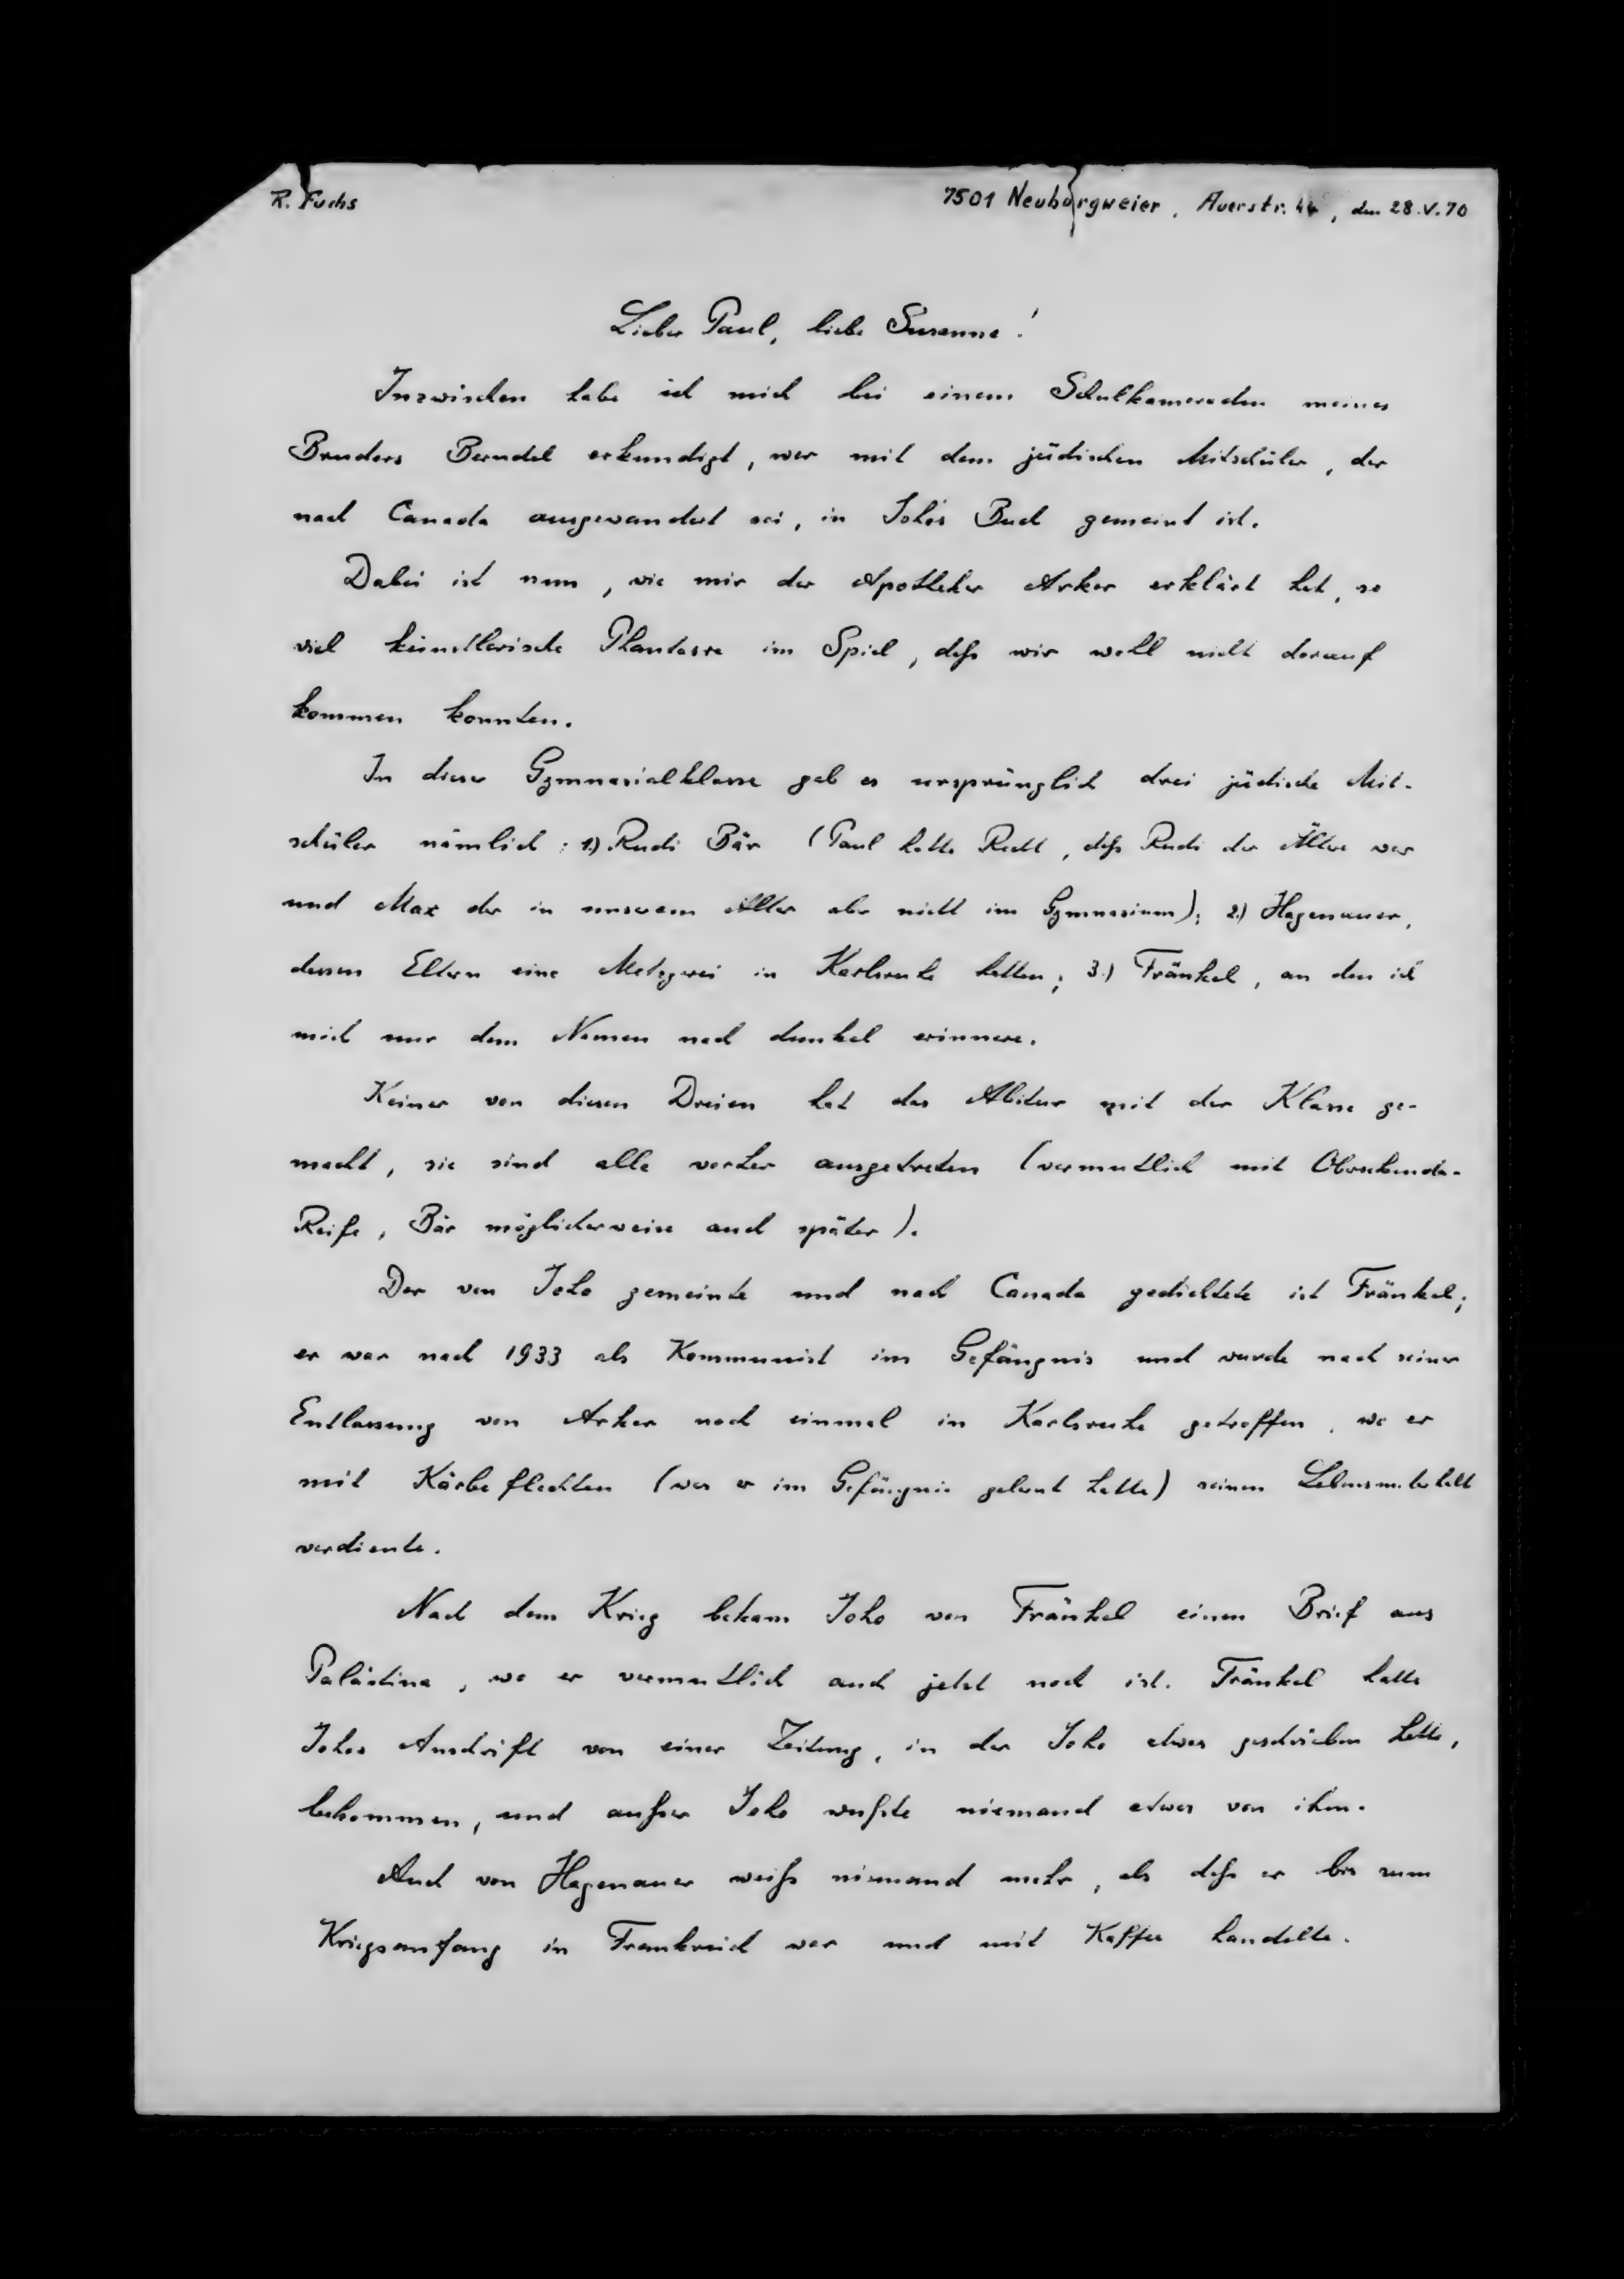 R. Fuchs
7501 Neuburgweier, Auerstr. 44, den 28.V.70
Lieber Paul, liebe Susanne!
Inzwischen habe ich mich bei einem Schulkameraden meines
Bruders Berndel erkundigt, wer mit dem jüdischen Mitschüler, der
nach Canada ausgewandert sei, in Joho's Buch gemeint ist.
Dabei ist nun, wie mir der Apotheker Arker erklärt hat, so
viel künstlerische Phantasie im Spiel, daß wir wohl nicht darauf
kommen konnten.
In dieser Gymnasialklasse gab es ursprünglich drei jüdische Mit-
schüler nämlich: 1.) Rudi Bär (Paul hatte Recht, daß Rudi der Ältere war
und Max der in unserem Alter aber nicht im Gymnasium); 2.) Hagenauer,
dessen Eltern eine Metzgerei in Karlsruhe hatten; 3.) Fränkel, an den ich
mich nur dem Namen nach dunkel erinnere.
Keiner von diesen Dreien hat das Abitur mit der Klasse ge-
macht, sie sind alle vorher ausgetreten (vermutlich mit Obersekunda-
Reife, Bär möglicherweise auch später).
Der von Joho gemeinte und nach Canada gedichtete ist Fränkel;
er war nach 1933 als Kommunist im Gefängnis und wurde nach seiner
Entlassung von Arker noch einmal in Karlsruhe getroffen, wo er
mit Körbeflechten (was er im Gefängnis gelernt hatte) seinen Lebensunterhalt
verdiente.
Nach dem Krieg bekam Joho von Fränkel einen Brief aus
Palästina, wo er vermutlich auch jetzt noch ist. Fränkel hatte
Johos Anschrift von einer Zeitung, in der Joho etwas geschrieben hatte,
bekommen, und außer Joho wußte niemand etwas von ihm.
Auch von Hagenauer weiß niemand mehr, als daß er bis zum
Kriegsanfang in Frankreich war und mit Kaffee handelte.